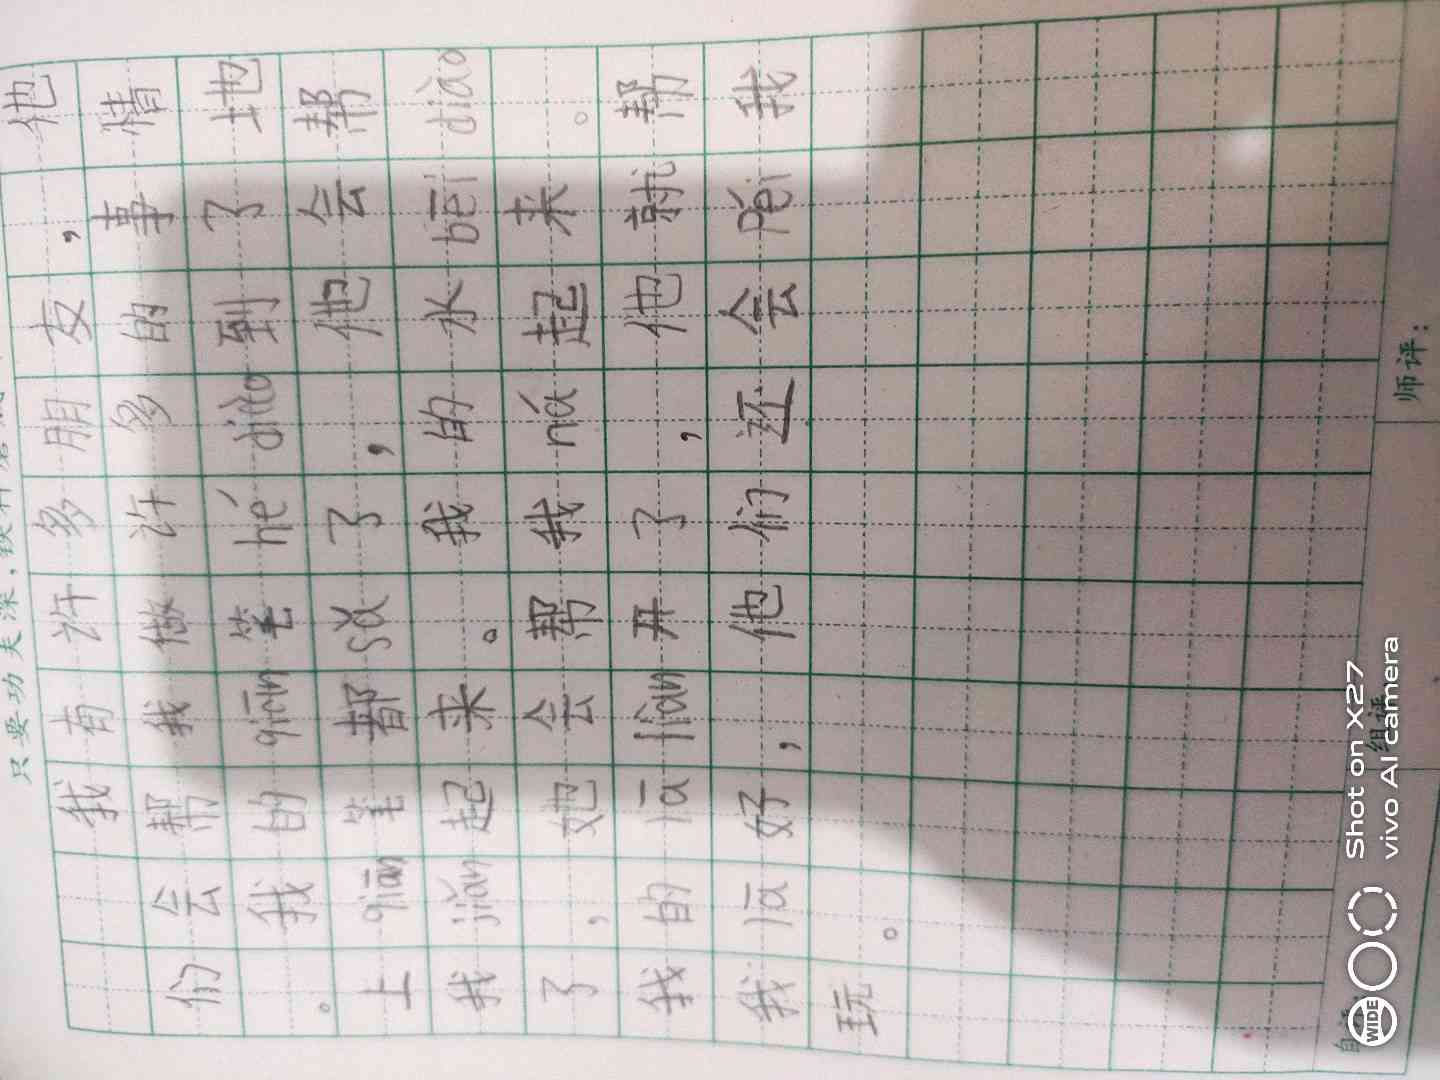 只要功夫深,铁杵磨
我有许多朋友，他
们会帮我做许多的事情
。我的qiān笔hé diào到了地
上qiān笔都sǎ了，他会帮
我jiǎn起来。我的水bēi diào
了，她会帮我ná起来。
我的lā liàn开了，他就帮
我lā好，他们还会péi我
玩。
自评: 组评 师评:
WIDE
Shot on X27
vivo AI camera